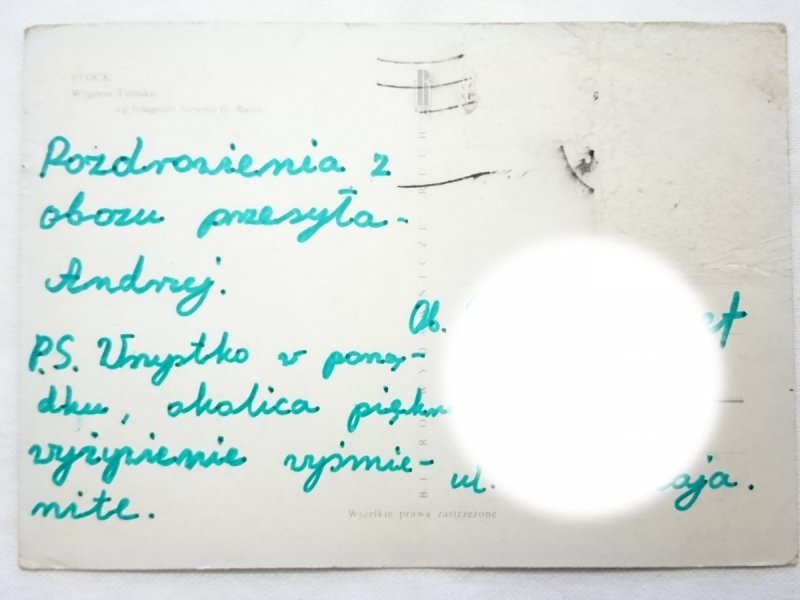 PŁOCK
Wzgórze Tumskie
wg fotografii barwnej G. Russa
Pozdrowienia z
obozu przesyła-
Andrzej.
P.S. Wszystko w porzą-
dku, okolica piękn
wyżywienie wyśmie-
nite.
Ob.
ul.
aja.
BIURO WYD NICZE RUCH
Wszelkie prawa zastrzeżone